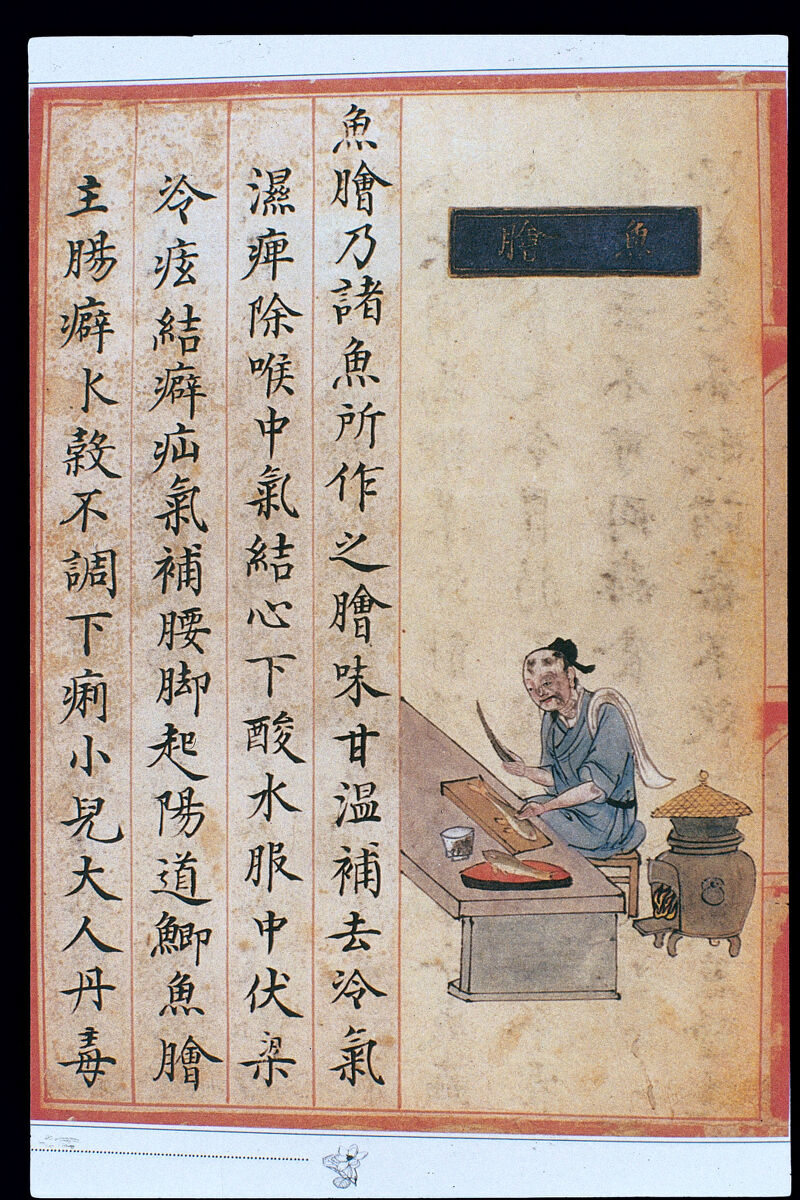 魚膾
魚膾乃諸魚所作之膾味甘温補去冷氣
濕痺除喉中氣結心下酸水服中伏梁
冷痃結癖疝氣補腰脚起陽道鯽魚膾
主腸癖水穀不調下痢小兒大人丹毒